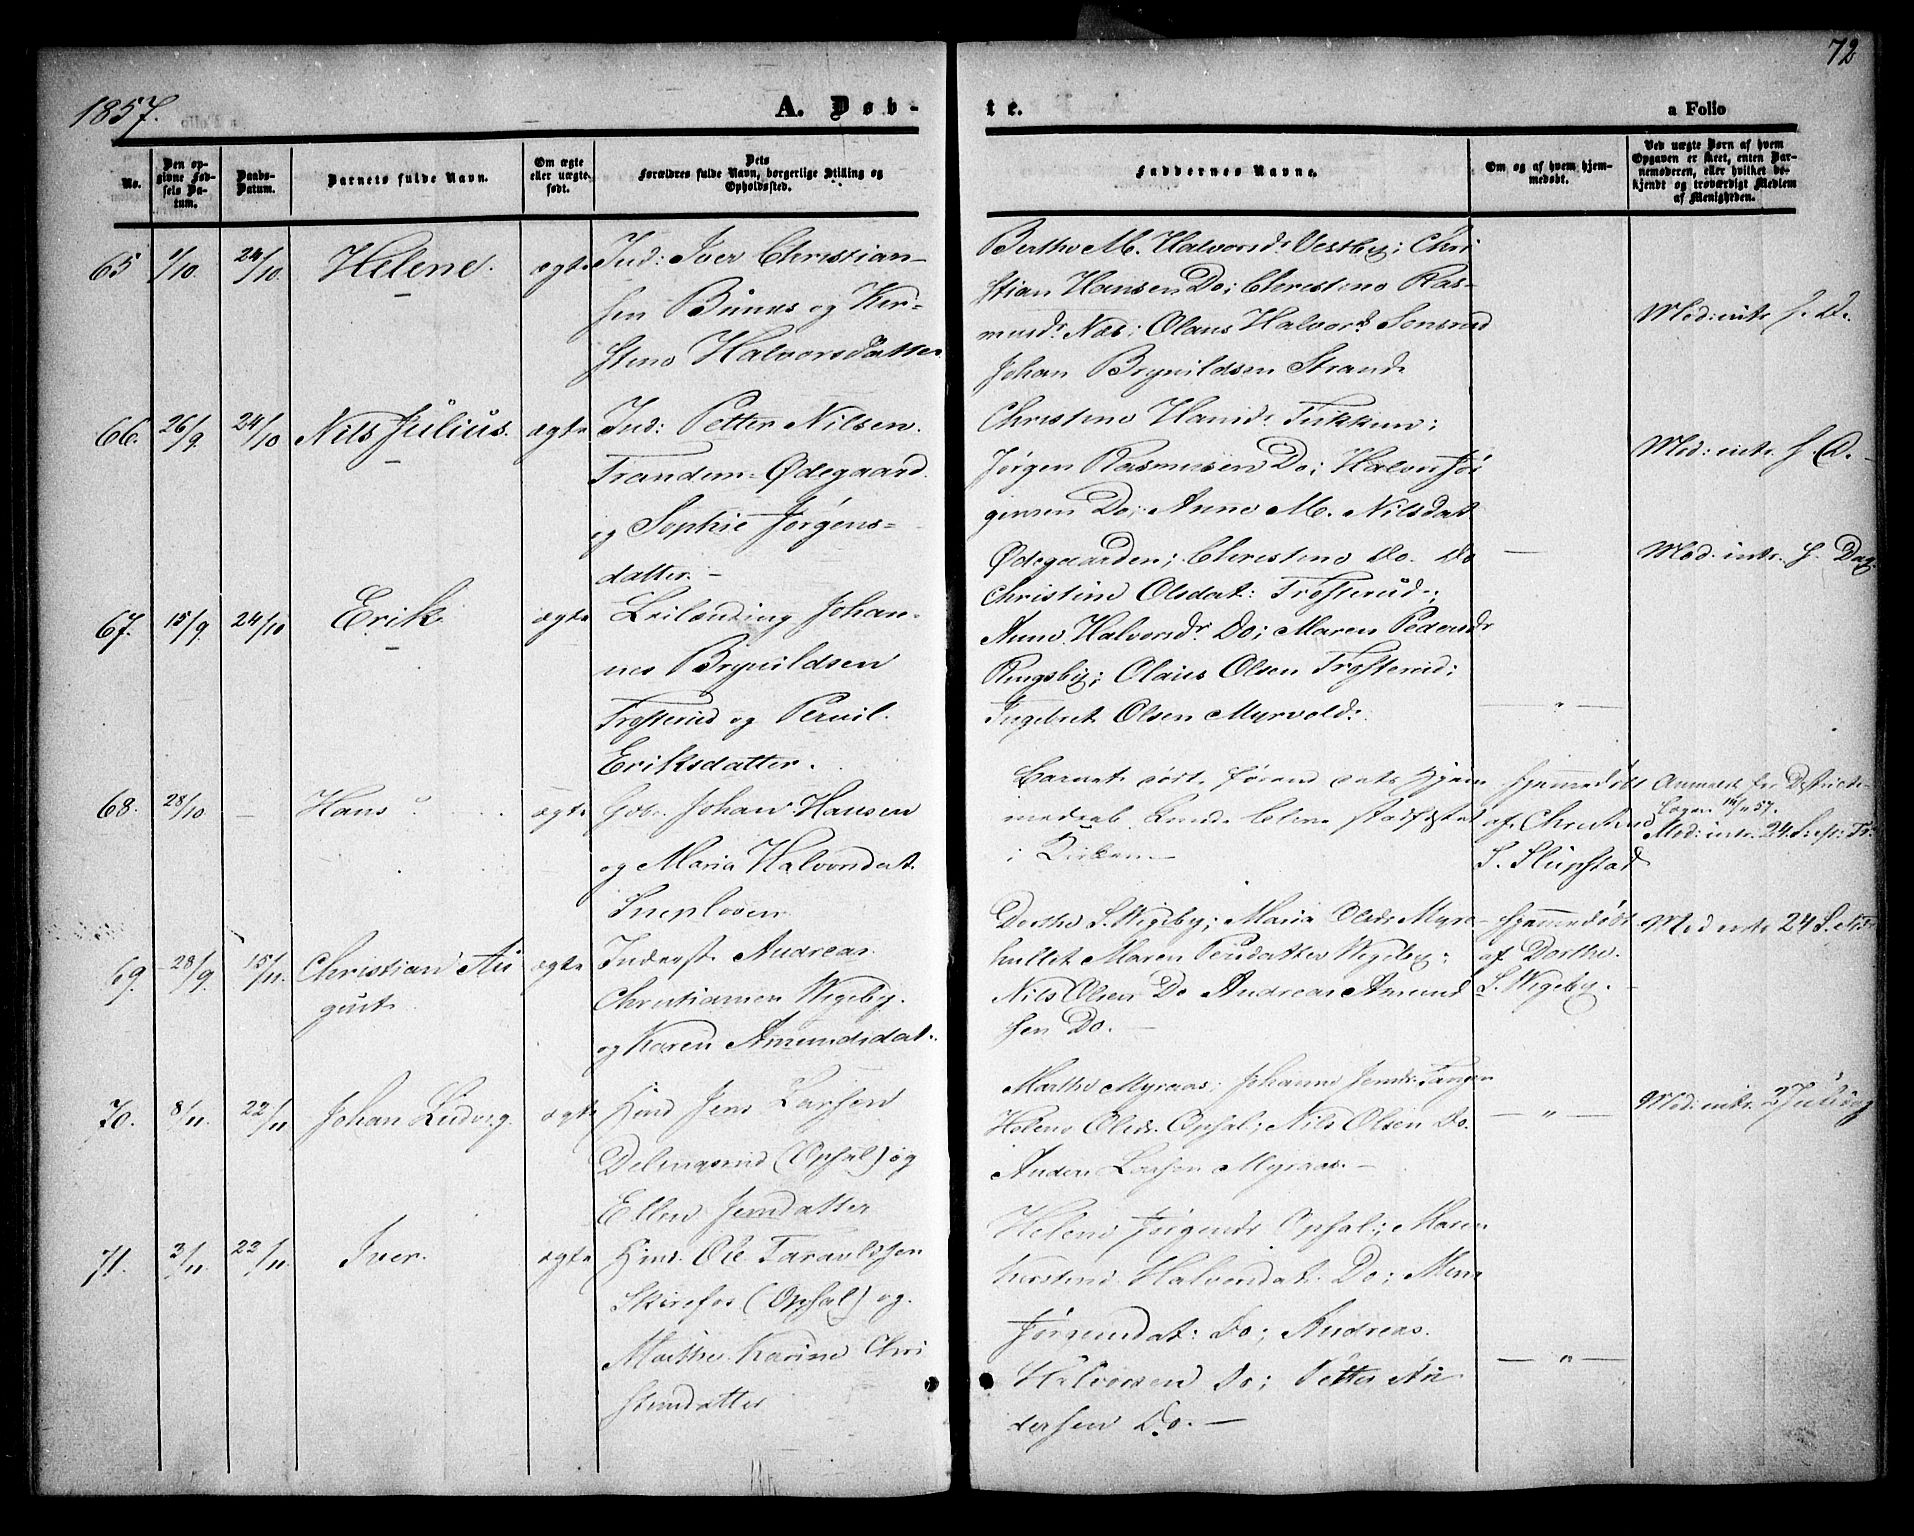 72
1857.
A. Døb-
te.
a Folio
No.
Den op-
givne Fød-
sels Da-
tum.
Daabs-
Datum.
Barnets fulde Navn.
Om ægte
eller uægte
født.
Dets
Forældres fulde Navn, borgerlige Stilling og
Opholdssted.
Faddernes Navne.
Om og af hvem hjem-
medøbt.
Ved uægte Børn af hvem
Opgaven er skeet, enten Bar-
nemoderen, eller hvilket be-
kjendt og troværdigt Medlem
af Menigheden.
65 1/10. 24/10. Helene. ægte
Ind: Iver Christian-
sen og Ker-
stine Halvorsdatter
Berthe M. Halvorsdr. Vestby; Chri
stian Hansen Do; Christine Ras-
musdr. Næs; Olaus Halvors Sonsrud
Johan Brynildsen Strand.
66. 26/9. 24/10 Nils Julius. ægte
Ind: Petter Nilsen.
Trandem-Ødegaard.
og Sophie Jørgens-
datter. -
Christine
Jørgen Rasmusen Do; Halvor Jør
gensen Do; Anne M. Nilsdat
Ødegaarden; Christine Do. Do
67. 15/9. 24/10 Erik. ægte
Leilænding Johan-
nes Brynildsen
Trøsterud og Pernil.
Eriksdatter.
Christine Olsdat: Trøsterud;
Anne Halvorsdr Do; Maren Pedersdr
Ringsby; Olaus Olsen Trøsterud;
Ingebret Olsen Myrvold.
68. 28/10. - Hans ægte
Gbr. Johan Hansen
og Maria Halvorsdat.
Barnet døde førend dets Hjem
medaab kunde blive stadfæstet
i Kirken. -
Hjemmedøbt
af Christian
S. Slupstad
Anmeldt for Districts-
Lægen 15/11 57.
Mod: intr. 24 S. e. Tr.
69. 28/9. 15/11. Christian Au
gust.
ægte
Inderst Andreas
Christiansen Wigeby.
og Karen Amundsdat.
Dorthe S. Wigeby; Maria Olsdr. Myr-
hullet Maren Wigeby;
Nils Olsen Do Andreas Amund
sen Do. -
Hjemmedøbt
af Dorthe
S. Wigeby.
70. 8/11. 22/11 Johan Ludvig. ægte
Hmd Jens Larsen
Delingsrud (Opsal) og
Ellen Jensdatter
Marthe Myraas; Johanne Jensdr. Tangen
Helene Olsdr. Opsal; Nils Olsen Do.
Anders Larsen Myraas. -
71. 3/11. 22/11. Iver. ægte
Hmd. Ole Taraldsen
Skirefos (Opsal) og.
Marthe Karine Chri
stensdatter
Helene Jørgensdr Opsal; Maren
Kerstine Halvorsdat. Do;
Jørgensdat: Do; Andreas.
Halvorsen Do; Petter An
dersen Do. -